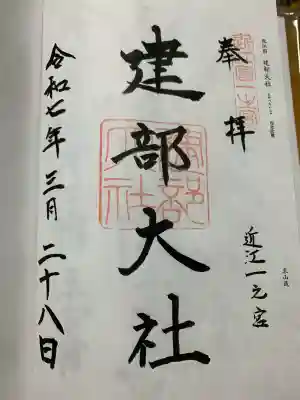 奉拝
建部大社
近江一之宮
令和七年三月二十八日